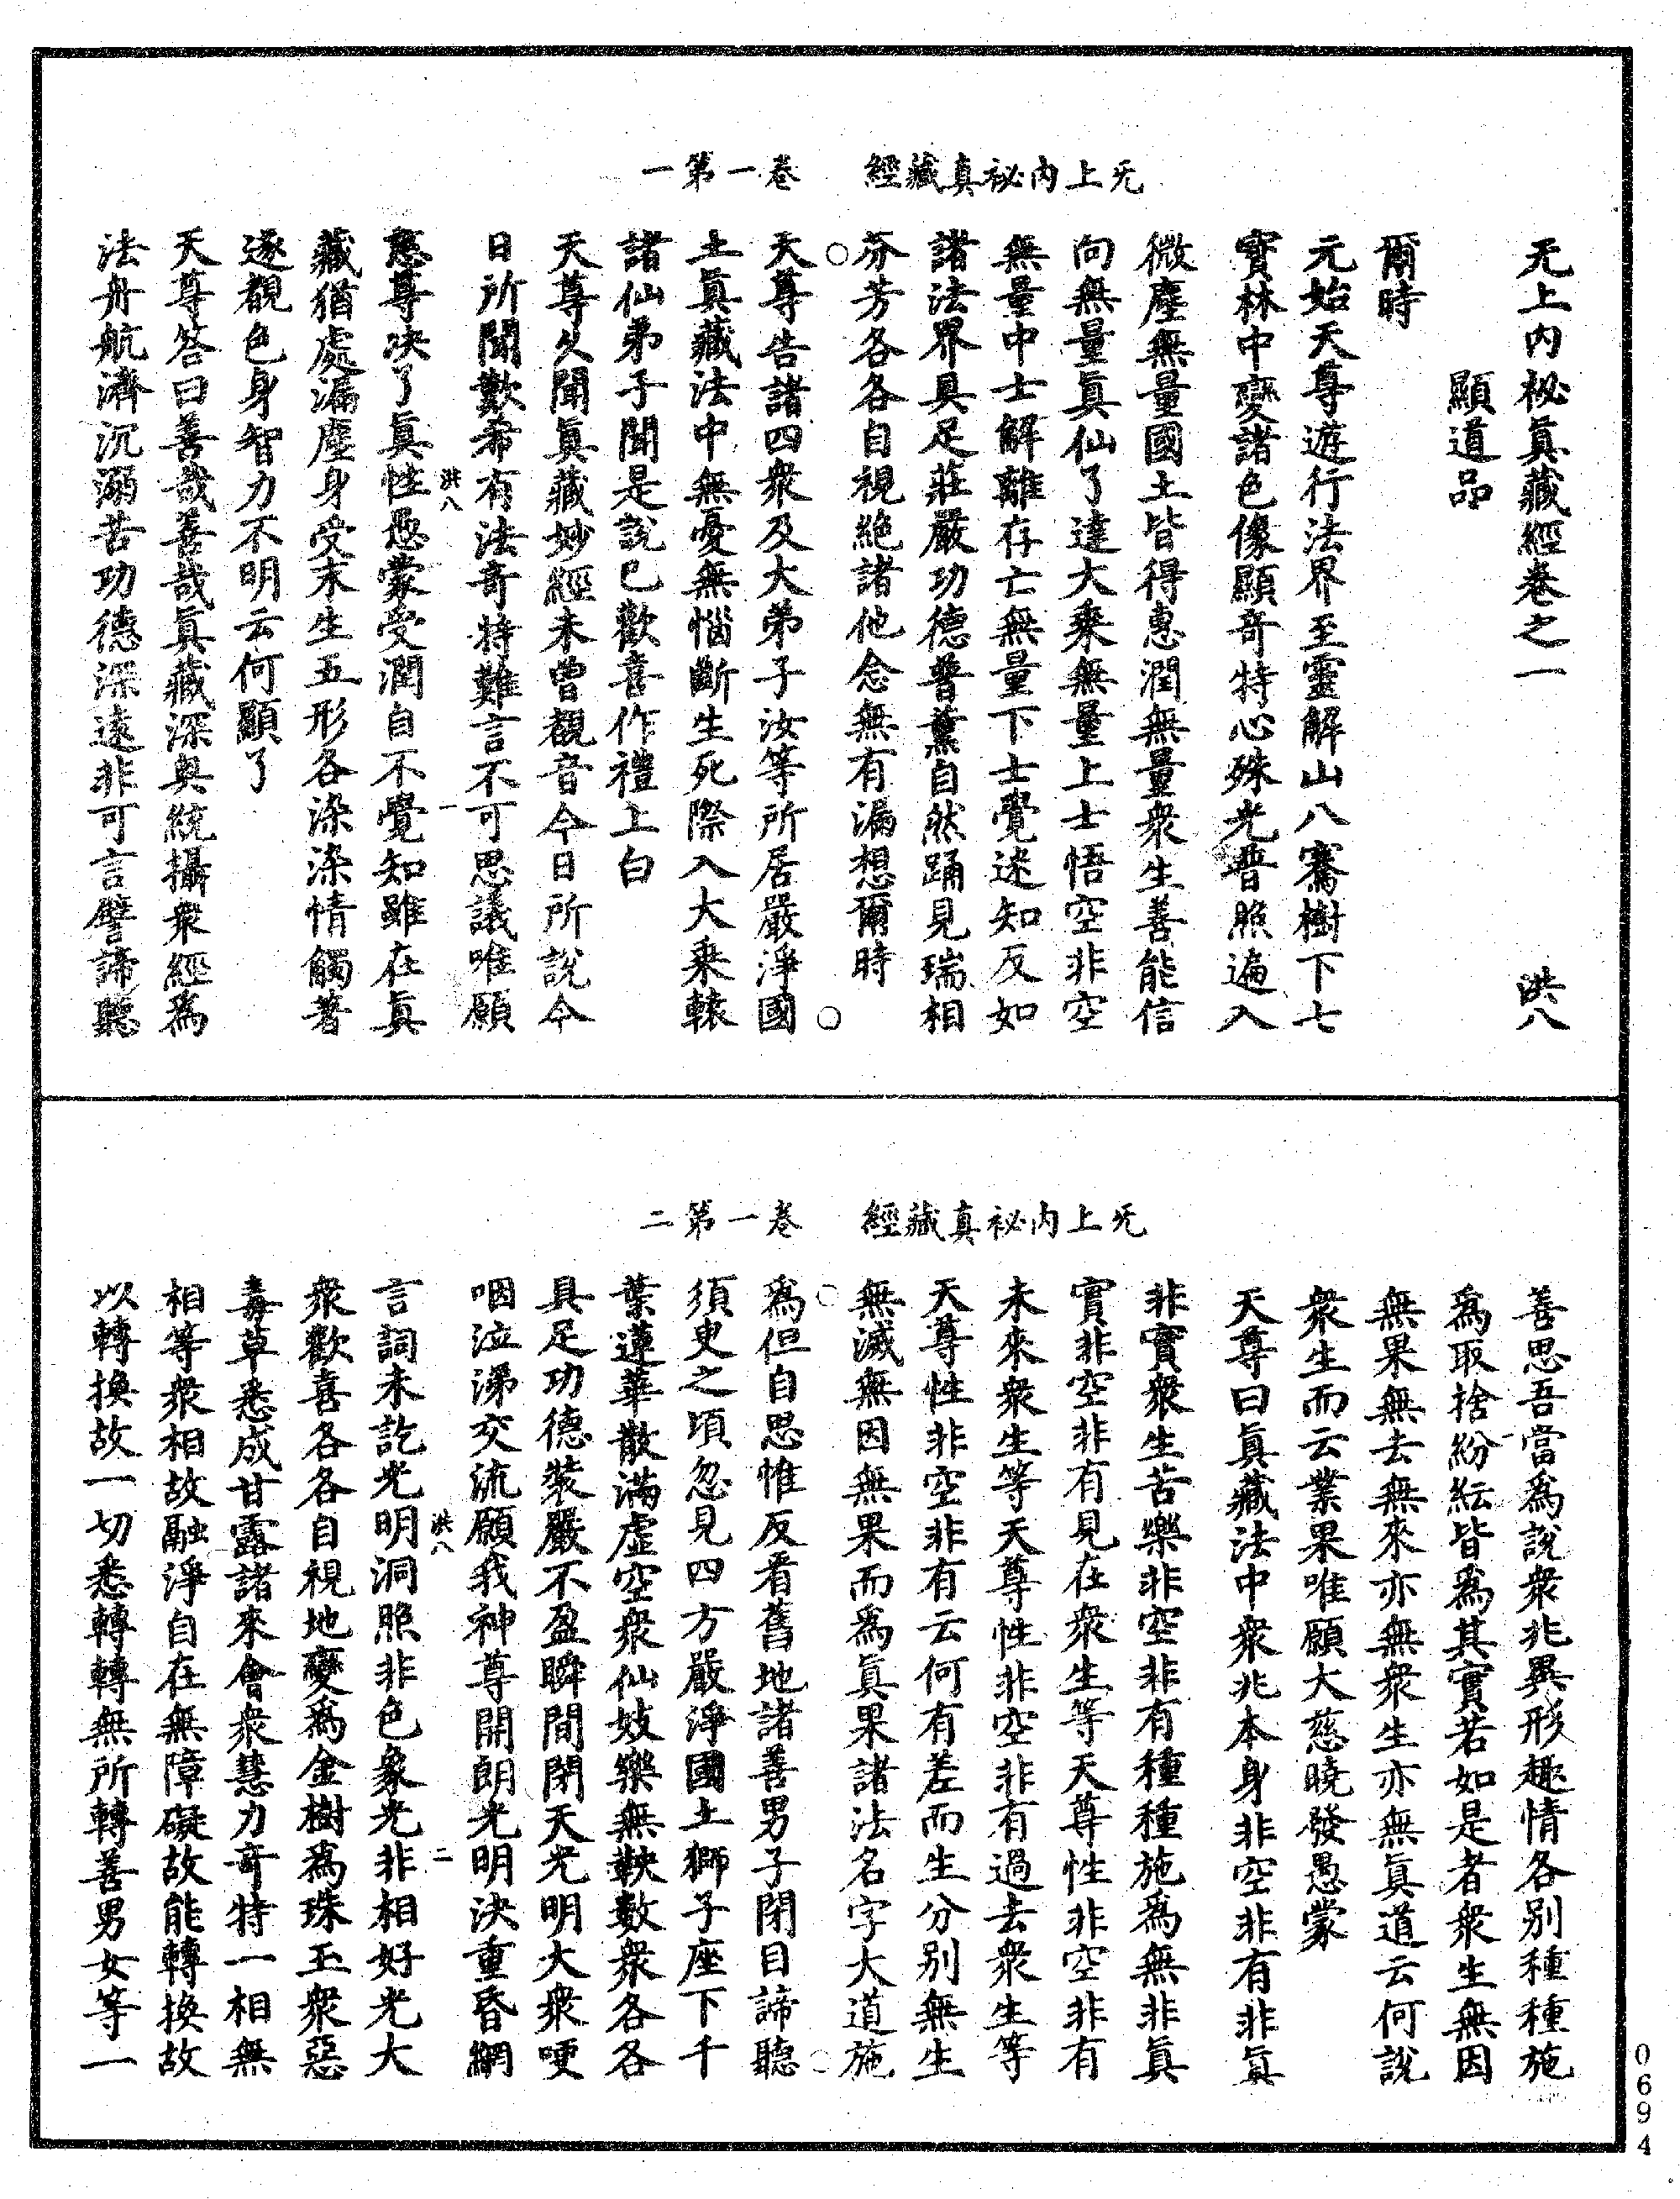 无上內祕真藏經　卷一第一
无上內祕眞藏經卷之一　洪八
顯道品
爾時
元始天尊遊行法界至靈解山八騫樹下七
寶林中變諸色像顯奇特心殊光普照遍入
微塵無量國土皆得惠潤無量衆生善能信
向無量眞仙了達大乘無量上士悟空非空
無量中士解離存亡無量下士覺迷知反如
諸法界具足莊嚴功德普薰自然踊見瑞相
芬芳各各自視絶諸他念無有漏想爾時
天尊告諸四衆及大弟子汝等所居嚴淨國
土眞藏法中無憂無惱斷生死際入大乘轅
諸仙弟子聞是說已歡喜作禮上白
天尊久聞眞藏妙經未曾覩音今日所說今
日所聞歎希有法奇特難言不可思議唯願
慈尊決了眞性愚蒙受潤自不覺知雖在眞
洪八　一
藏猶處漏塵身受末生五形各染染情觸著
逐覩色身智力不明云何顯了
天尊答曰善哉善哉眞藏深奥統攝衆經爲
法舟航濟沉溺苦功德深遠非可言譬諦聽
无上內祕真藏經　卷一第二
善思吾當爲說衆兆異形趣情各別種種施
爲取捨紛紜皆爲其實若如是者衆生無因
無果無去無來亦無衆生亦無眞道云何說
衆生而云業果唯願大慈曉發愚蒙
天尊曰眞藏法中衆兆本身非空非有非眞
非實衆生苦樂非空非有種種施爲無非眞
實非空非有見在衆生等天尊性非空非有
未來衆生等天尊性非空非有過去衆生等
天尊性非空非有云何有差而生分別無生
無滅無因無果而爲眞果諸法名字大道施
爲但自思惟反看舊地諸善男子閉目諦聽
須臾之頃忽見四方嚴淨國土獅子座下千
葉蓮華散滿虛空衆仙妓樂無鞅數衆各各
具足功德裝嚴不盈瞬間閉天光明大衆哽
咽泣涕交流願我神尊開朗光明決重昏網
言詞未訖光明洞照非色象光非相好光大
洪八　二
衆歡喜各各自視地變爲金樹爲珠玉衆惡
毒草悉成甘露諸來會衆慧力奇特一相無
相等衆相故融淨自在無障礙故能轉換故
以轉換故一切悉轉轉無所轉善男女等一
0694